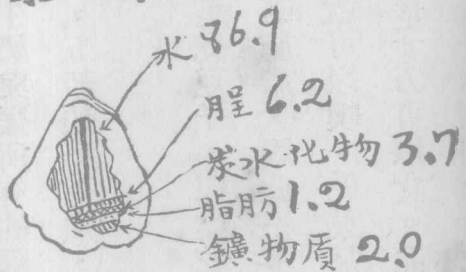 水 86.9
脭 6.2
炭水化物 3.7
脂肪 1.2
鑛物質 2.0